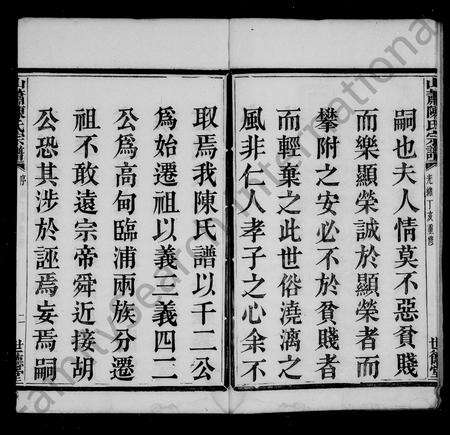 嗣也夫人情莫不惡貧賤
而樂顯榮誠於顯榮者而
攀附之安必不於貧賤者
而輕棄之此世俗澆漓之
風非仁人孝子之心余不
取焉我陳氏譜以千二公
為始遷祖以義三義四二
公為高甸臨浦兩族分遷
祖不敢遠宗帝舜近接胡
公恐其涉於誣焉妄焉嗣
山蕭陳氏宗譜
光緒丁亥重修
世德堂
山蕭陳氏宗譜
序
二
世德堂
FamilySearch International